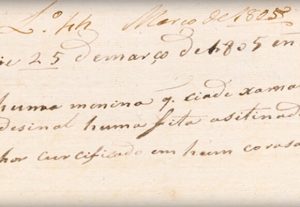 L.º 44 Março de 1805
25 de março de 1805 en
huma menina q. ciade xama
desinal huma fita asitinad
hor curcificado em hum corasa